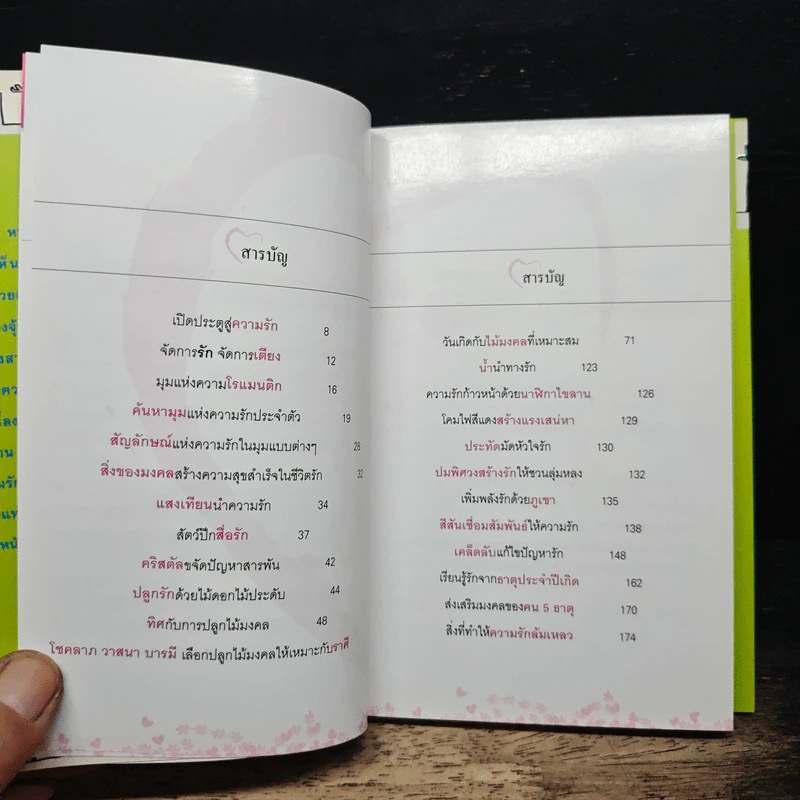 สารบัญ
เปิดประตูสู่ความรัก 8
จัดการรัก จัดการเตียง 12
มุมแห่งความโรแมนติก 16
ค้นหามุมแห่งความรักประจำตัว 19
สัญลักษณ์แห่งความรักในมุมแบบต่างๆ 28
สิ่งของมงคลสร้างความสุขสำเร็จในชีวิตรัก 32
แสงเทียนนำความรัก 34
สัตว์ปีกสื่อรัก 37
คริสตัลขจัดปัญหาสารพัน 42
ปลูกรักด้วยไม้ดอกไม้ประดับ 44
ทิศกับการปลูกไม้มงคล 48
โชคลาภ วาสนา บารมี เลือกปลูกไม้มงคลให้เหมาะกับราศี
สารบัญ
วันเกิดกับไม้มงคลที่เหมาะสม 71
น้ำนำทางรัก 123
ความรักก้าวหน้าด้วยนาฬิกาไขลาน 126
โคมไฟสีแดงสร้างแรงเสน่หา 129
ประทัดมัดหัวใจรัก 130
ปมพิศวงสร้างรักให้ชวนลุ่มหลง 132
เพิ่มพลังรักด้วยภูเขา 135
สีสันเชื่อมสัมพันธ์ให้ความรัก 138
เคล็ดลับแก้ไขปัญหารัก 148
เรียนรู้รักจากธาตุประจำปีเกิด 162
ส่งเสริมมงคลของคน 5 ธาตุ 170
สิ่งที่ทำให้ความรักล้มเหลว 174